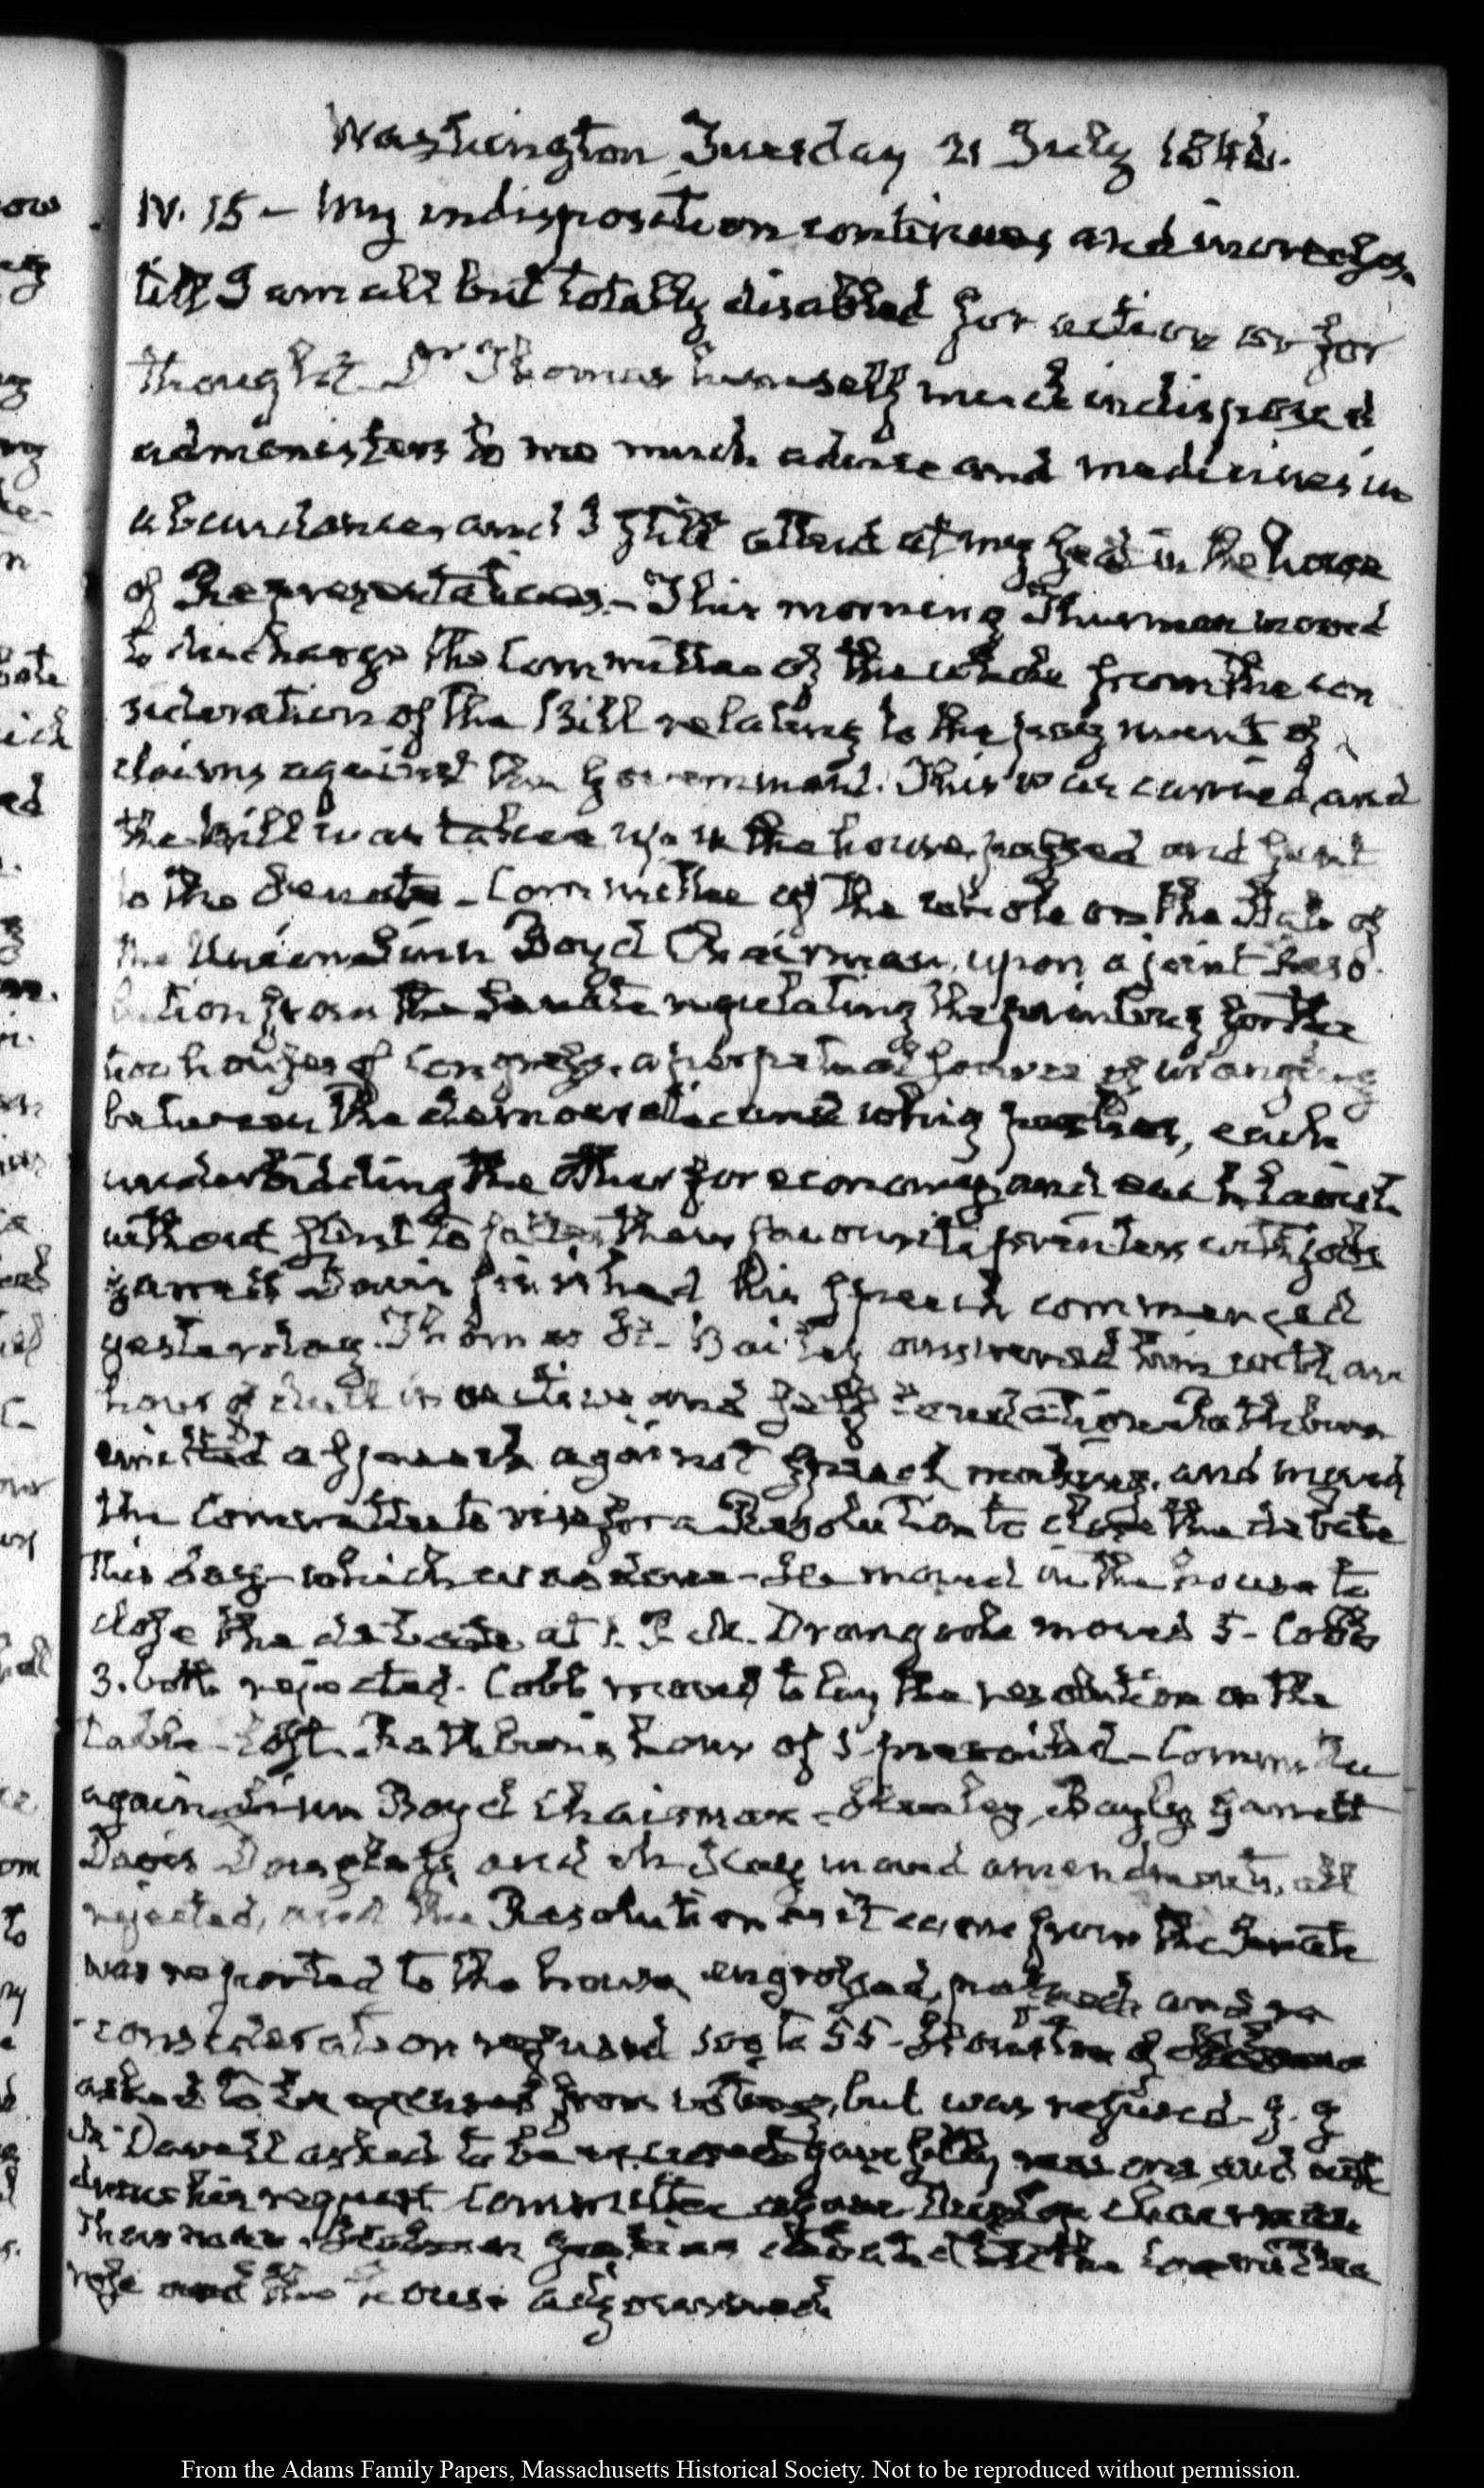 Washington Tuesday 21 July 1846.
IV. 15 – My indisposition continues, and increases,
till I am all but totally disabled for action or for
thought. Dr Thomas himself much indisposed
administers to me much advice and medicines in
abundance, and I still attend at my seat in the house
of Representatives. – This morning Thurman moved
to discharge the Committee of the whole from the con
sideration of the Bill relating to the payment of
claims against the Government. This was carried, and
the bill was taken up in the house, passed and sent
to the Senate – Committee of the whole on the State of
the Union Linn Boyd Chairman, upon a joint Reso
lution from the Senate regulating the printing for the
two houses of Congress, a perpetual source of wrangling
between the democratic and whig parties, each
underbidding the other for economy, and each lavish
without stint to fatten their favourite printers with jobs
Garrett Davis finished his speech commenced
yesterday. Thomas H. Bayley answered him with an
hour of dull invective and Rathbun
a speech against speech making, and moved
the Committee to rise for a Resolution to close the debate
this day – which was done – He moved in the house to
close the debate at 1. P.M. Dromgoole moved 5 – Cobb
3. both rejected. Cobb moved to lay the resolution on the
table – lost. Rathbun's hour of 1 prevailed – Committee
again Linn Boyd Chairman – Bayly, Garrett
Davis Douglass, and McClay moved amendments, all
rejected, and the Resolution as it came from the Senate
was reported to the house, engrossed, passed and re
consideration refused 109 to 55 – Houston of
asked to be excused from voting, but was refused – J. J.
McDowell asked to be excused gave his reasons and with
drew his request Committee again chairman
Thurman, debated till the Committee
rose and the house adjourned
From the Adams Family Papers, Massachusetts Historical Society. Not to be reproduced without permission.